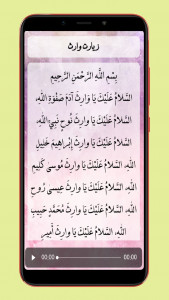 زیارت وارث
بِسْمِ اللَّهِ الرَّحْمَنِ الرَّحِيمِ
السَّلامُ عَلَيْكَ يَا وَارِثَ آدَمَ صَفْوَةِ اللَّهِ،
السَّلامُ عَلَيْكَ يَا وَارِثَ نُوحٍ نَبِيِّ اللَّهِ،
السَّلامُ عَلَيْكَ يَا وَارِثَ إِبْرَاهِيمَ خَلِيلِ
اللَّهِ، السَّلامُ عَلَيْكَ يَا وَارِثَ مُوسَى كَلِيمِ
اللَّهِ، السَّلامُ عَلَيْكَ يَا وَارِثَ عِيسَى رُوحِ
اللَّهِ، السَّلامُ عَلَيْكَ يَا وَارِثَ مُحَمَّدٍ حَبِيبِ
اللَّهِ، السَّلامُ عَلَيْكَ يَا وَارِثَ أَمِيرِ
00:00 00:00